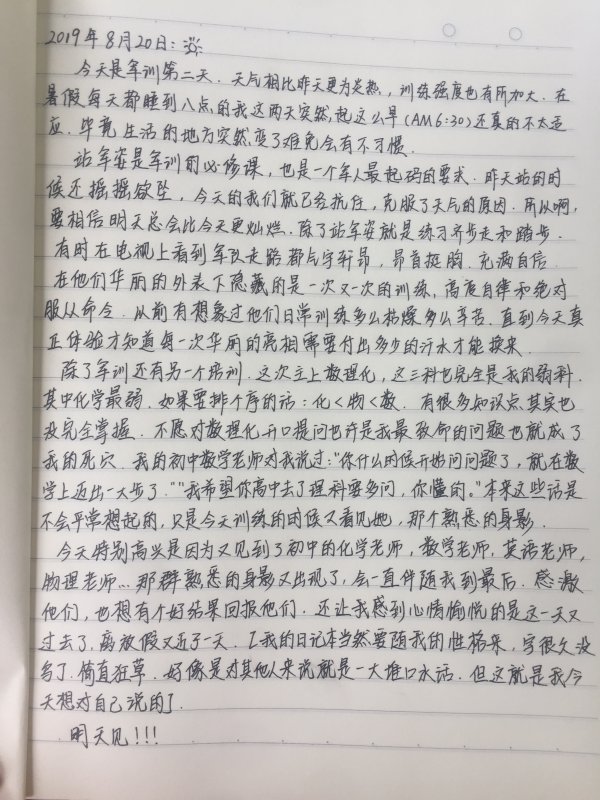 2019年8月20日:
今天是军训第二天.天气相比昨天更为炎热,训练强度也有所加大.在
暑假每天都睡到八点的我这两天突然起这么早(AM6:30)还真的不太适
应.毕竟生活的地方突然变了难免会有不习惯.
站军姿是军训的必修课,也是一个军人最起码的要求.昨天站的时
候还摇摇欲坠,今天的我们就已经抗住,克服了天气的原因.所以啊,
要相信明天总会比今天更灿烂.除了站军姿就是练习齐步走和踏步.
有时在电视上看到军队走路都气宇轩昂,昂首挺胸.充满自信.
在他们华丽的外表下隐藏的是一次又一次的训练,高度自律和绝对
服从命令.从前有想象过他们日常训练多么枯燥多么辛苦.直到今天真
正体验才知道每一次华丽的亮相需要付出多少的汗水才能换来.
除了军训还有另一个培训.这次立上数理化,这三科也完全是我的弱科.
其中化学最弱.如果要排个序的话:化<物<数.有很多知识点其实也
没完全掌握.不愿对数理化开口提问也许是我最致命的问题也就成了
我的死穴.我的初中数学老师对我说过:"你什么时候开始问问题了,就在数
学上迈出一大步了.""我希望你高中去了理科要多问,你懂的。"本来这些话是
不会平常想起的,只是今天训练的时候又看见她,那个熟悉的身影.
今天特别高兴是因为又见到了初中的化学老师,数学老师,英语老师,
物理老师...那群熟悉的身影又出现了,会一直伴随我到最后.感激
他们,也想有个好结果回报他们.还让我感到心情愉悦的是这一天又
过去了,离放假又近了一天.我的日记本当然要随我的性格来,字很久没
写了.简直狂草.好像是对其他人来说就是一大堆口水话.但这就是我今
天想对自己说的了.
明天见!!!